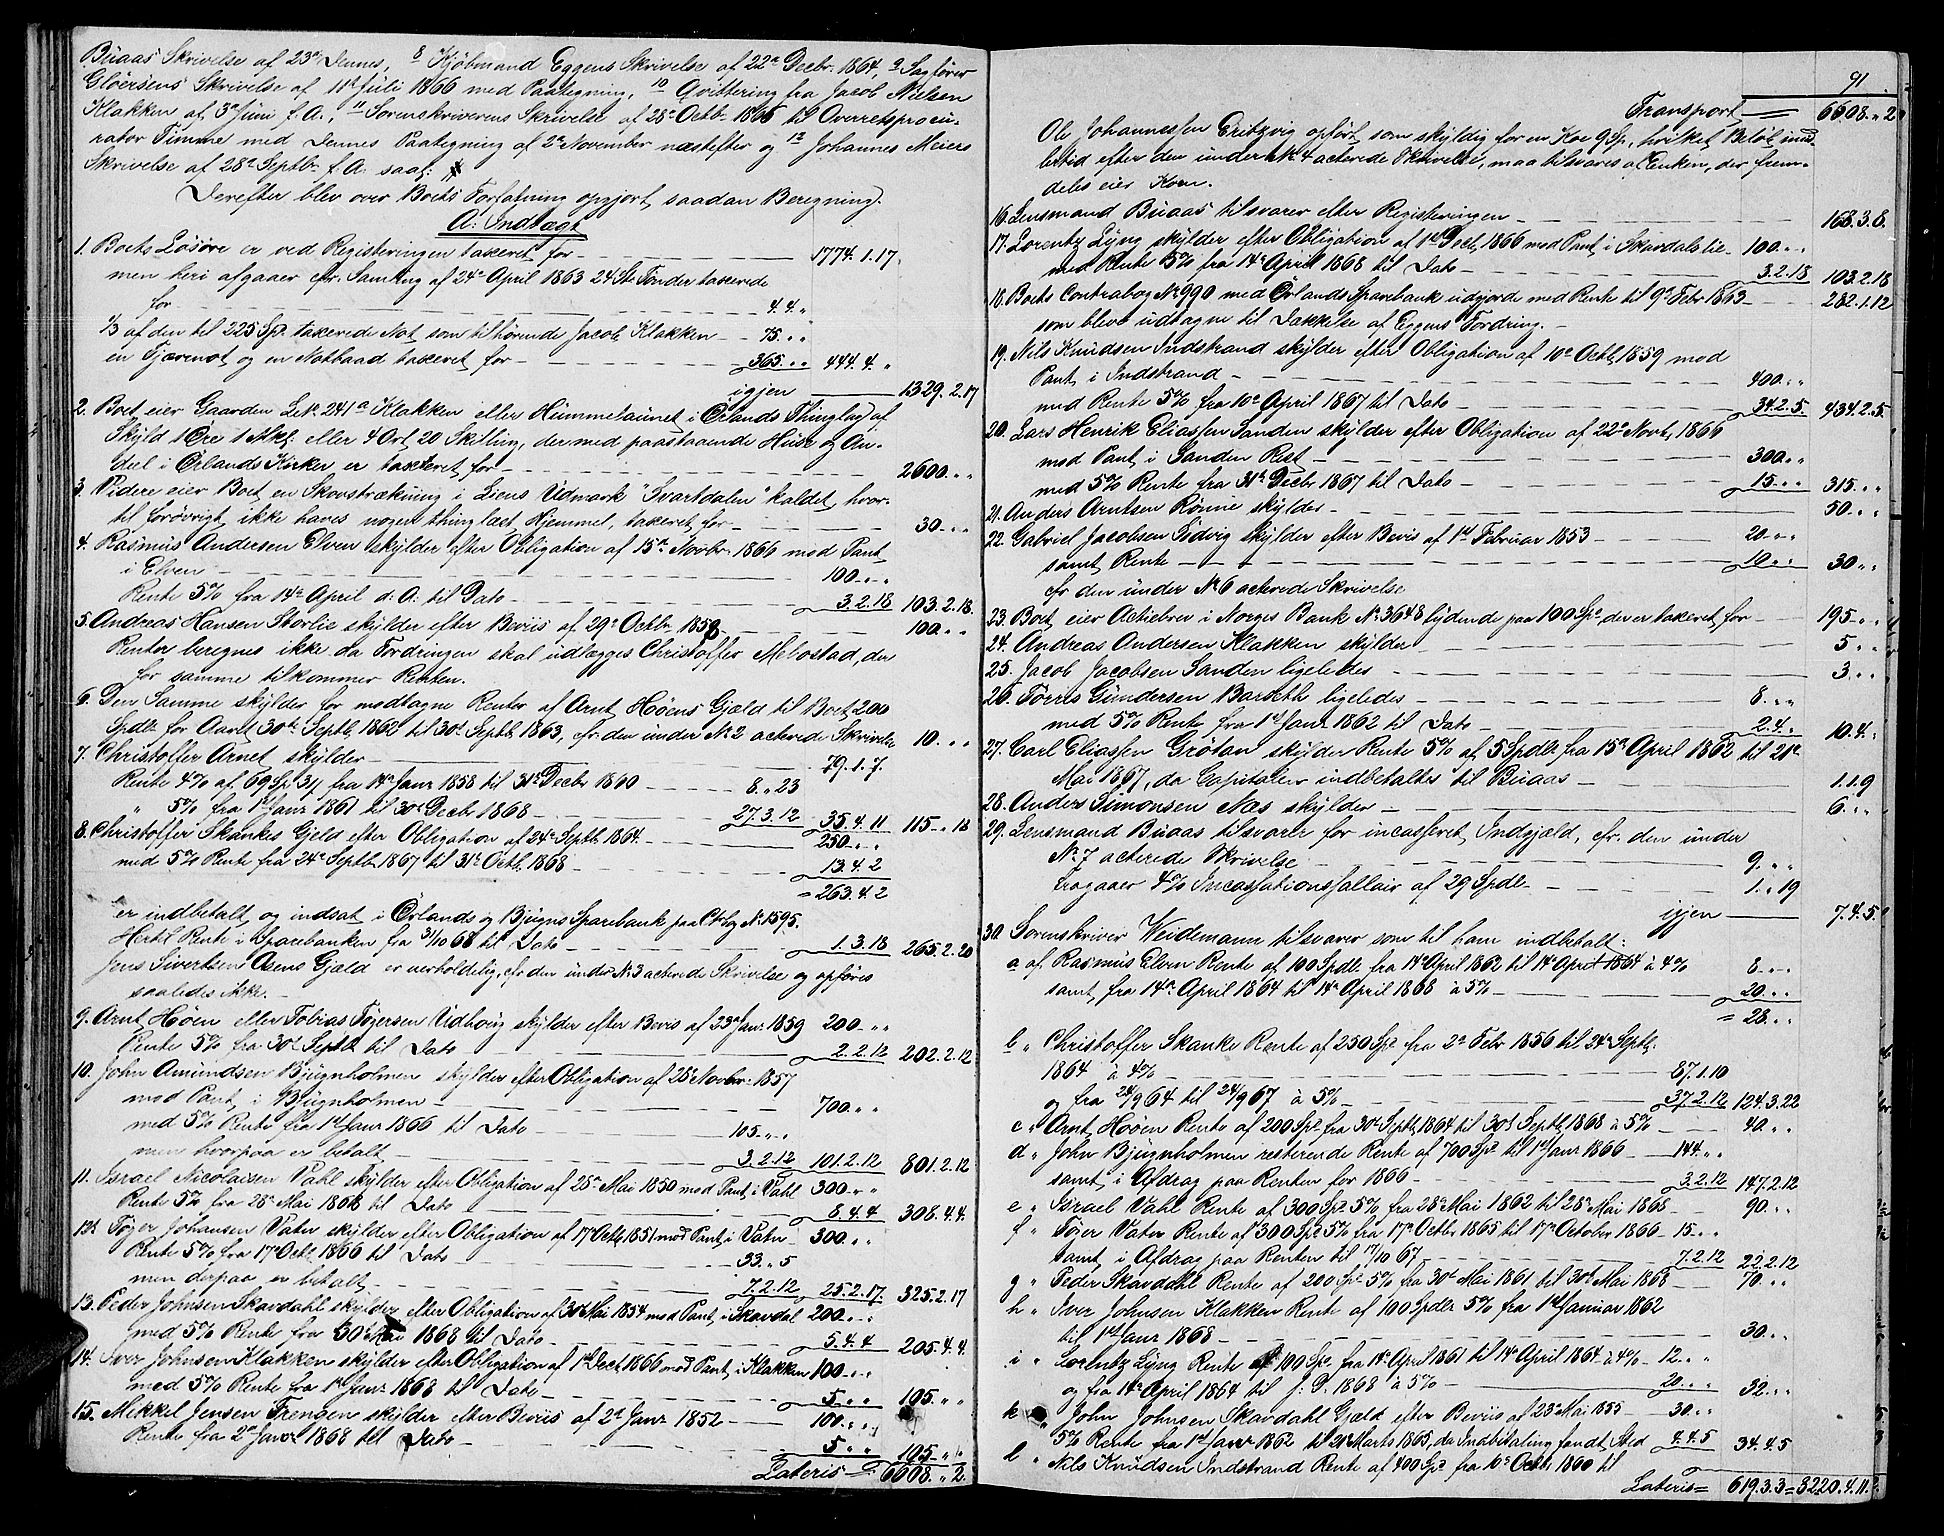 Buaas Skrivelse af 23de Dennes, 8 Kjøbmand Eggens Skrivelse af 22de Decbr. 1864, 9 Sagfører
Gløersens Skrivelse af 11te Juli 1866 med Paategning, 10 Qvittering fra Jacob Nielsen
Klakken af 3de Juni f. A., 11 Sorenskriverens Skrivelse af 28de Octbr. 1865 til Overretsprocu-
rator Timme med Dennes Paategning af 2den November næstefter og 12 Johannes Meiers
Skrivelse af 28de Septbr. f. A. saal:
Derefter blev over Boets Forfatning opgjort saadan Beregning.
A. Indtægt
1. Boets Løsøre er ved Registeringen taxeret for 1774.1.17.
men heri afgaaer cfr. Samling af 24de April 1863 24 Stk Tønder taxerede
for 4.4. "
1/3 af den til 225 Sp. taxerede Not, som tilhørende Jacob Klakken 75. " "
en Fjærenot og en Notbaad taxeret for 365. " " 444.4. "
igjen 1329.2.17
2. Boet eier Gaarden L.No. 241a Klakken eller Hummelsunet i Ørlands Thinglag af
Skyld 1 Øre 1 Mkl. eller 4 Ort 20 Skilling, der med paastaaende Huse og An-
deel i Ørlands Kirker er taxeret for 2600. " "
3. Videre eier Boet en Skovstrækning i Liens Udmark "Svartdalen" kaldet, hvor-
til forøvrigt ikke haves nogen thinglæst Hjemmel, taxeret for 30. " "
4. Rasmus Andersen Elven skylder efter Obligation af 15de Novbr. 1866 med Pant
i Elven 100. " "
Rente 5% fra 14de April d. A. til Dato 3.2.18 103.2.18.
5. Andreas Hansen Storlie skylder efter Beviis af 29de Octbr. 1858 100. " "
Renter beregnes ikke da Fordringen skal udlægges Christoffer Melvostad, der
for samme tilkommer Renten.
6. Den Samme skylder for modtagne Renter af Arnt Høens Gjæld til Boet 200
Spdlr for Aaret 30te Septb. 1862 til 30te Septb. 1863, cfr. den under No 2 acterede Skrivelse 10. " "
7. Christoffer Arnet skylder 79.1.7.
Rente 4% af 69 Sp. 3 ƒ fra 14de Janr 1858 til 31te Decbr 1860 8. " 23
" 5% fra 1ste Janr 1861 til 30te Decbr 1868 27.3.12 35.4.11 115. " 18
8. Christoffer Skankes Gjeld efter Obligation af 24de Septb. 1864 250. " "
med 5% Rente fra 24de Septb. 1867 til 31te Octb. 1868 13.4.2
= 263.4.2
er indbetalt og indsat i Ørlands og Bjugns Sparebank paa Ctrbog No. 1595.
Hertil Rente i Sparebanken fra 31/10 68 til Dato 1.3.18 265.2.20
Jens Sivertsen Osens Gjæld er uerholdelig, cfr. den under No. 3 acterede Skrivelse og opføres
saaledes ikke.
9. Arnt Høen eller Tobias Tøgersen Udhoug skylder efter Bevis af 23de Janr 1859 200. " "
Rente 5% fra 30te Septb. til Dato 2.2.12 202.2.12
10. John Amundsen Bjugnholmen skylder efter Obligation af 28de Novbr. 1857
med Pant i Bjugnholmen 700. " "
med 5% Rente fra 1ste Janr 1866 til Dato 105. " "
men hvorpaa er betalt 3.2.12 101.2.12 801.2.12
11. Israel Nicolaisen Vahl skylder efter Obligation af 28de Mai 1850 med Pant i Vahl 300. " "
Rente 5% fra 28de Mai 1868 til Dato 8.4.4 308.4.4.
12. Tøger Johansen Vatn skylder efter Obligation af 17de Octb. 1851 med Pant i Vatn 300. " "
Rente 5% fra 17de Octb. 1866 til Dato 33. " 5
men derpaa er betalt 7.2.12 25.2.17. 325.2.17
13. Peder Johnsen Skavdahl skylder efter Obligation af 30te Mai 1854 med Pant i Skavdal 200. " "
med 5% Rente fra 30te Mai 1868 til Dato 5.4.4 205.4.4.
14. Iver Johnsen Klakken skylder efter Obligation af 1ste Decb. 1866 med Pant i Klakken 100. " "
med 5% Rente fra 1ste Janr 1868 til Dato 5. " " 105. " "
15. Mikkel Jensen Trengen skylder efter Beviis af 2den Janr 1852 100. " "
Rente fra 2den Janr 1868 til Dato 5. " " 105. " "
Lateris 6608. " 2.
91
Transport 6608. " 2
Ole Johannessen Eritzvig opført som skyldig for en Koe 9 Sp., hvilket Beløb imid-
lertid efter den under No. 4 acterede Skrivelse, maa tilsvares af Enken, der frem-
deles eier Koen.
16. Lensmand Buaas tilsvarer efter Registeringen 168.3.8.
17. Lorentz Lyng skylder efter Obligation af 1ste Decb. 1866 med Pant i Skavdalslie 100. " "
med Rente 5% fra 14de April 1868 til Dato 3.2.18 103.2.18
18. Boets Contrabog No. 990 med Ørlands Sparebank udgjorde med Rente til 9de Febr 1863 282.1.12
som blev udtagne til Dækkelse af Eggens Fordring.
19. Nils Knudsen Indstrand skylder efter Obligation af 10de Octb. 1859 med
Pant i Indstrand 400. " "
med Rente 5% fra 10de April 1867 til Dato 34.2.5 434.2.5.
20. Lars Henrik Eliassen Sanden skylder efter Obligation af 22de Novb. 1866
med Pant i Sanden Rest 300. " "
med 5% Rente fra 31te Decbr 1867 til Dato 15. " " 315. " "
21. Anders Arntsen Rønne skylder 50. " "
22. Gabriel Jacobsen Sidvig skylder efter Bevis af 1ste Februar 1853 20. " "
samt Rente 10. " " 30. " "
cfr den under No 6 acterede Skrivelse
23. Boet eier Actiebrev i Norges Bank No. 3648 lydende paa 100 Spd. der er taxeret for 195. " "
24. Andreas Andersen Klakken skylder 5. " "
25. Jacob Jacobsen Sanden ligeledes 3. " "
26. Tørris Gundersen Barseth ligeledes 8. " "
med 5% Rente fra 1ste Janr 1862 til Dato 2.4. " 10.4. "
27. Carl Eliassen Grøtan skylder Rente 5% af 5 Spdlr fra 15de April 1862 til 21de
Mai 1867, da Capitalen indbetaltes til Buaas 1.1.9
28. Anders Simonsen Næs skylder 6. " "
29. Lensmand Buaas tilsvarer for incasseret Indgjæld, cfr. den under
No. 7 acterede Skrivelse 9. " "
Fragaaer 4% Incassationssallair af 29 Spdlr 1. " 19
igjen 7.4.5.
30. Sorenskriver Weidemann tilsvarer som til ham indbetalt:
a af Rasmus Elven Rente af 100 Spdlr. fra 14de April 1862 til 14de April 1864 à 4% 8. " "
samt fra 14de April 1864 til 14de April 1868 à 5% 20. " "
= 28. " "
b " Christoffer Skanke Rente af 250 Spd. fra 2den Febr 1856 til 24de Septb.
1864 à 4% 87.1.10
og fra 24/9 64 til 24/9 67 à 5% 37.2.12 124.3.22
c " Arnt Høen Rente af 200 Spd. fra 30te Septb. 1864 til 30te Septb. 1868 à 5% 40. " "
d " John Bjugnholmen resterende Rente af 700 Spd. til 1ste Janr 1866 144. " "
samt i Afdrag paa Renten for 1866 3.2.12 147.2.12
e " Israel Vahl Rente af 300 Spd. 5% fra 28de Mai 1862 til 28de Mai 1868 90. " "
f " Tøger Vatn Rente af 300 Spd. 5% fra 17de Octbr 1865 til 17de October 1866 15. " "
samt i Afdrag paa Renten til 17/10 67 7.2.12 22.2.12
g " Peder Skavdahl Rente af 200 Spd. 5% fra 30te Mai 1861 til 30te Mai 1868 70. " "
h " Iver Johnsen Klakken Rente af 100 Spdlr 5% fra 1ste Januar 1862
til 1ste Janr 1868 30. " "
i " Lorentz Lyng Rente af 100 Spd. fra 14de April 1861 til 14de April 1864 à 4% 12. " "
og fra 14de April 1864 til s. D. 1868 à 5% 20. " " 32. " "
k " John Johnsen Skavdahl Gjæld efter Beviis af 23de Mai 1855 30. " "
5% Rente fra 1ste Janr 1862 til 21de Marts 1865, da Indbetaling fandt Sted 4.4.5 34.4.5
l " Nils Knudsen Indstrand Rente af 400 Spd. fra 10de Octbr. 1860 til
Lateris = 619.3.3 = 8220.4.11.